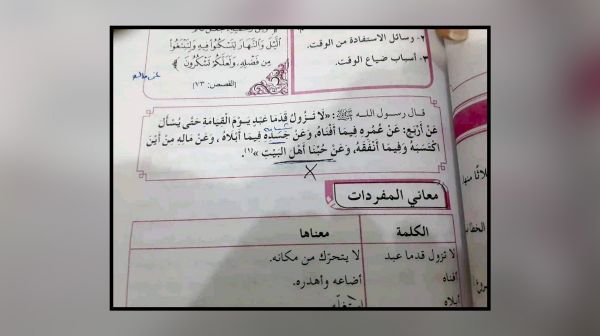 ٢- رسائل الاستفادة من الوقت.
٣- أسباب ضياع الوقت.
الَّيْلَ وَالنَّهَارَ لِتَسْكُنُوا فِيهِ وَلِتَبْتَغُوا
مِن فَضْلِهِ وَلَعَلَّكُمْ تَشْكُرُونَ ﴾
[القصص: ٧٣]
قال رسول الله ﷺ: «لَا تَزُولُ قَدَمَا عَبْدٍ يَوْمَ الْقِيَامَةِ حَتَّى يُسْأَلَ
عَنْ أَرْبَعٍ: عَنْ عُمُرِهِ فِيمَا أَفْنَاهُ، وَعَنْ جَسَدِهِ فِيمَا أَبْلَاهُ، وَعَنْ مَالِهِ مِنْ أَيْنَ
اكْتَسَبَهُ وَفِيمَا أَنْفَقَهُ، وَعَنْ حُبِّنَا أَهْلَ الْبَيْتِ»(١).
معاني المفردات
الكلمة معناها
لا تزول قدما عبد لا يتحرّك من مكانه.
أفناه أضاعه وأهدره.
أبلاه